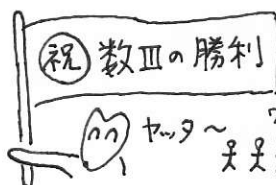 祝 数Ⅲの勝利
ヤッタ〜